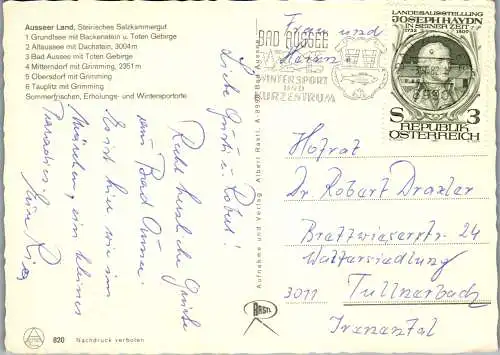 Ausseer Land, Steirisches Salzkammergut
1 Grundlsee mit Backenstein u. Toten Gebirge
2 Altaussee mit Dachstein, 3004 m
3 Bad Aussee mit Toten Gebirge
4 Mitterndorf mit Grimming, 2351 m
5 Obersdorf mit Grimming
6 Tauplitz mit Grimming
Sommerfrischen, Erholungs- und Wintersportorte
Liebe Gusti u. Robert!
Recht herzliche Grüße
aus Bad Aussee.
Es ist hier wie im
Märchen, ein kleines
Paradies.
820
Nachdruck verboten
Aufnahme und Verlag: Albert Rastl, A-8990 Bad Aussee
RASTL
BAD AUSSEE
WINTERSPORT
UND
KURZENTRUM
LANDESAUSSTELLUNG
JOSEPH HAYDN
IN SEINER ZEIT
1732 1809
S 3
REPUBLIK
ÖSTERREICH
Frau und
Herrn
Hofrat
Dr. Robert Draxler
Brettwieserstr. 24
Waltersiedlung
3011 Tullnerbach
Irenental